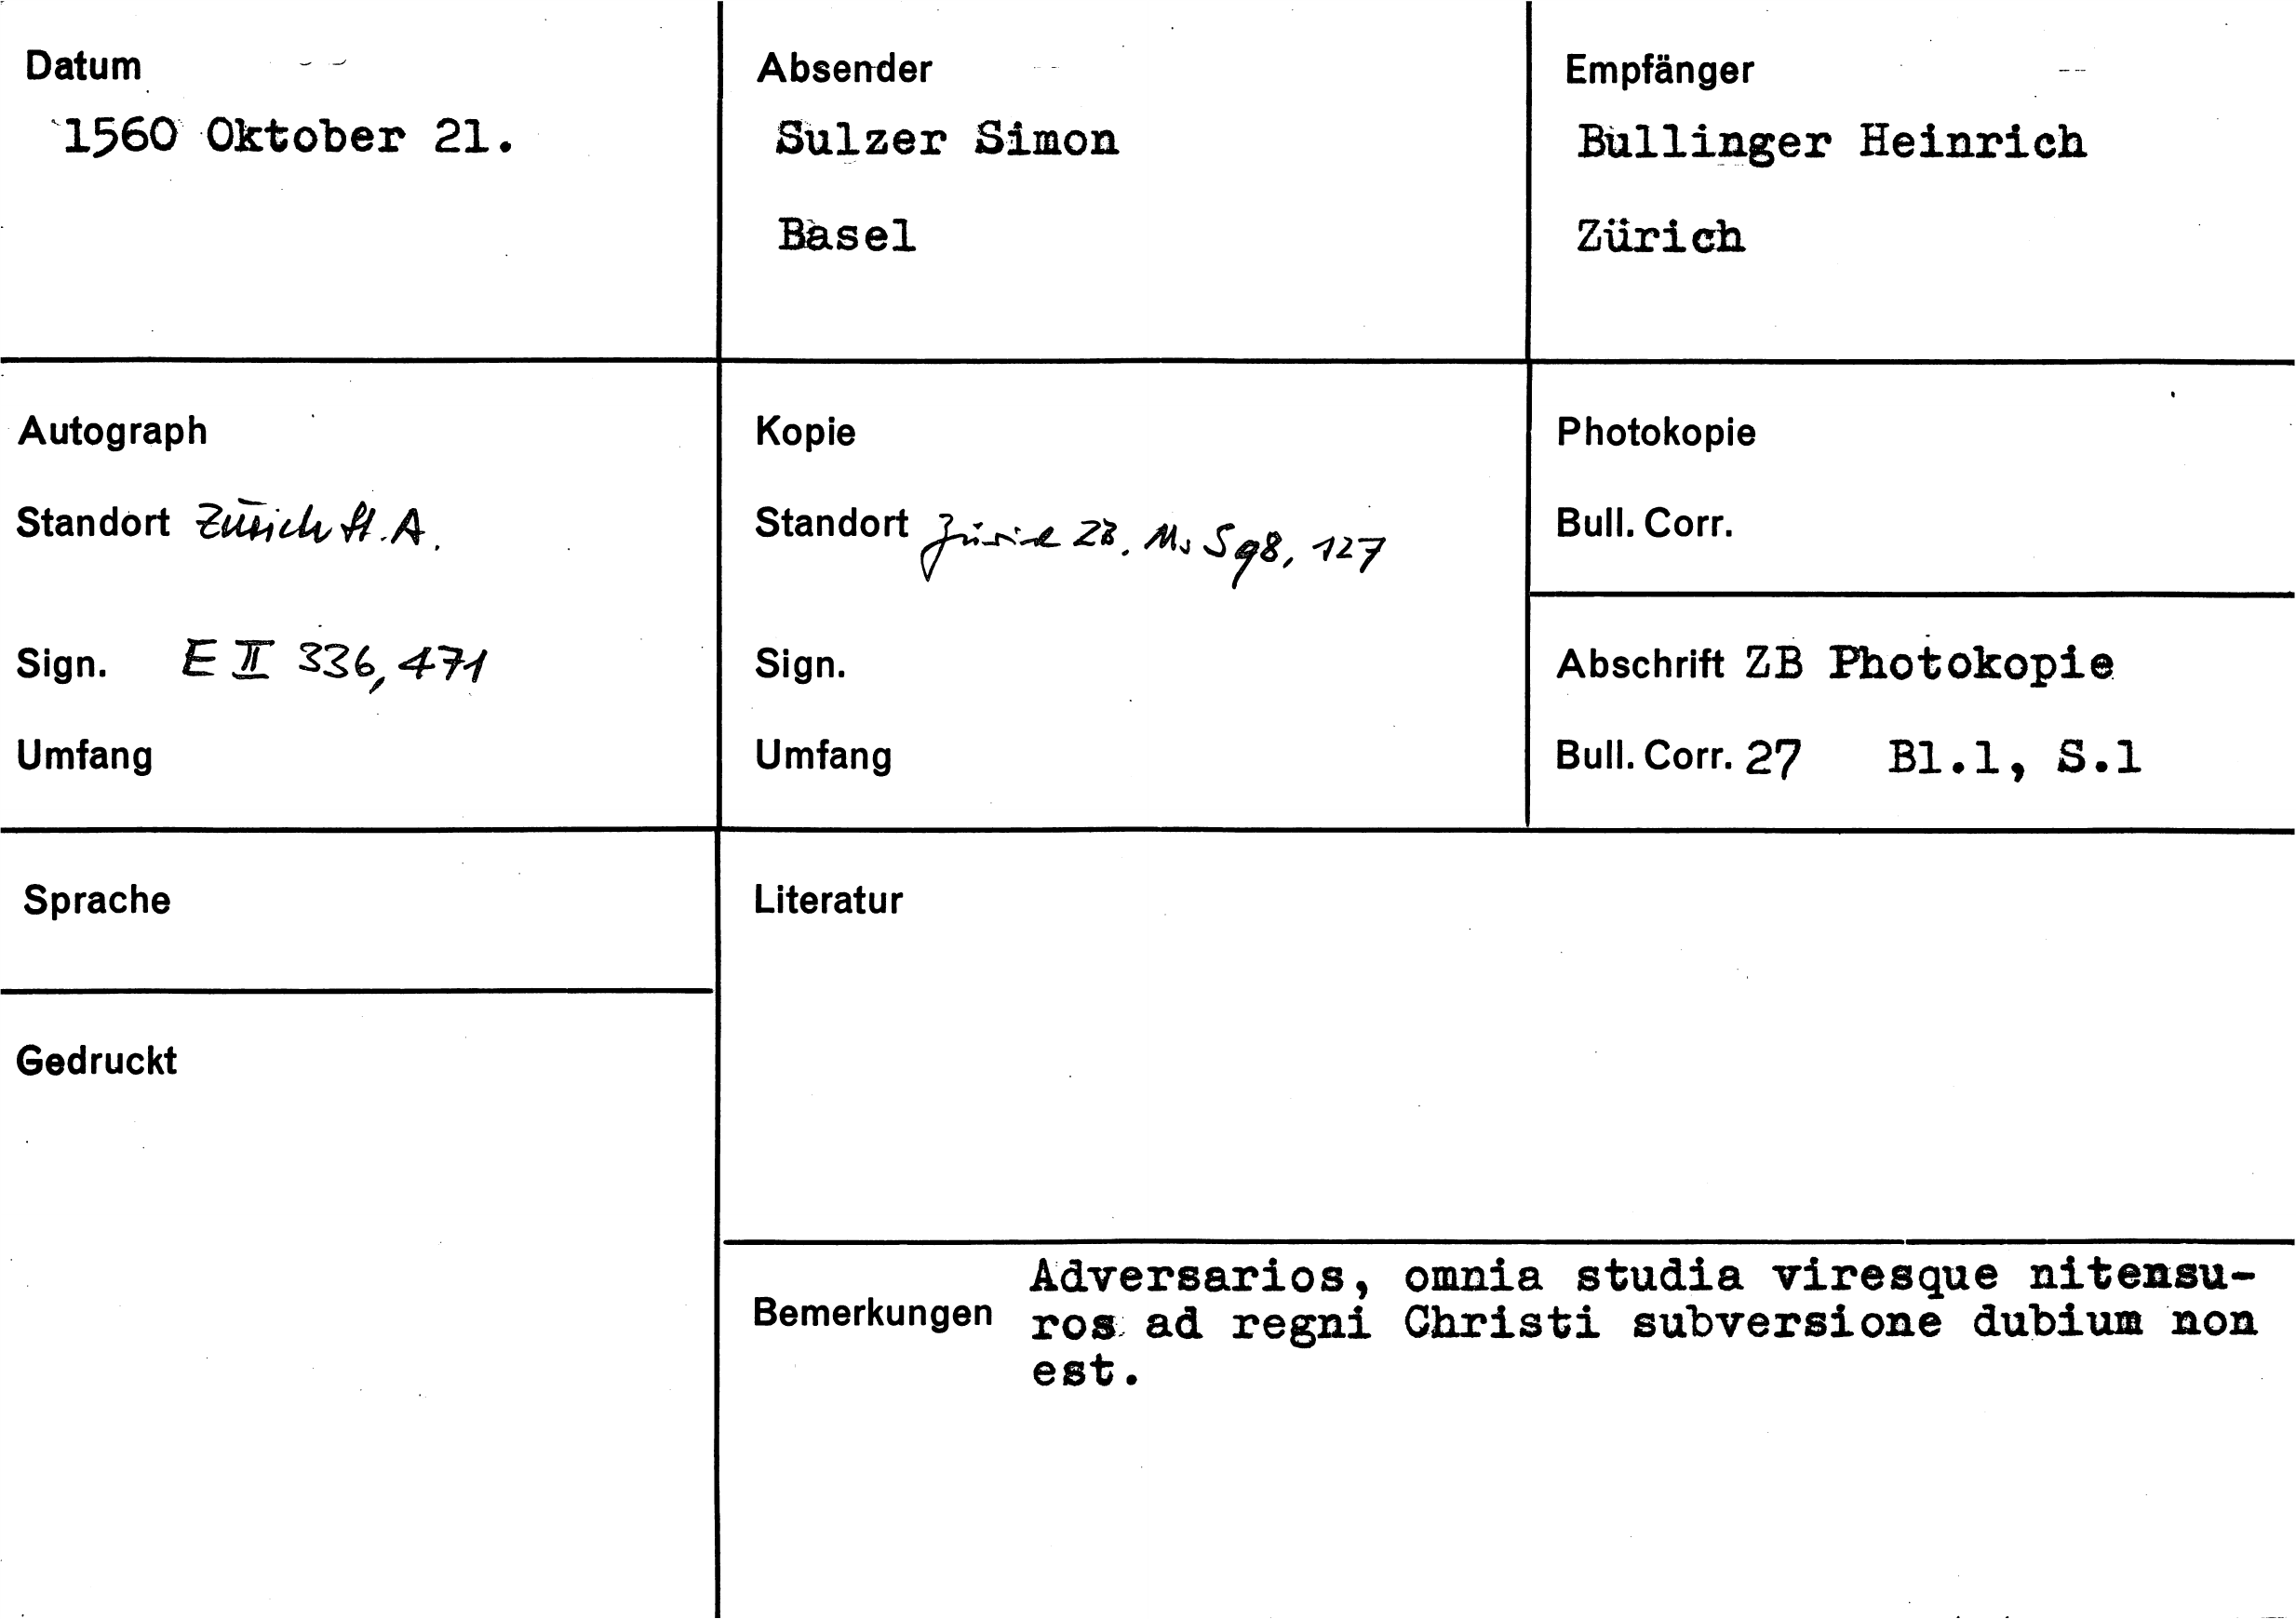 Datum
1560 Oktober 21.
Absender
Sulzer Simon
Basel
Empfänger
Bullinger Heinrich
Zürich
Autograph
Standort Zürich St. A.
Sign. E II 336, 471
Umfang
Kopie
Standort Zürich ZB. Ms S 98, 127
Sign.
Umfang
Photokopie
Bull. Corr.
Abschrift ZB Photokopie
Bull. Corr. 27 Bl.1, S.1
Sprache
Gedruckt
Literatur
Bemerkungen
Adversarios, omnia studia viresque nitensu-
ros ad regni Christi subversione dubium non
est.